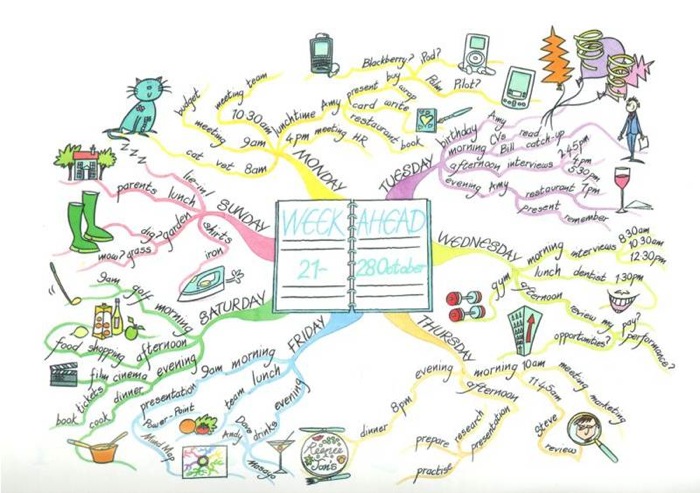 WEEK AHEAD
21- 28 October
MONDAY
cat vet 8am
meeting 9am
budget
meeting 10.30am
team
lunchtime Amy
present buy
wrap
Blackberry?
iPod?
Palm Pilot?
card write
restaurant book
4pm meeting HR
TUESDAY
birthday Amy
morning CVs read
Bill catch-up
afternoon interviews 2.45pm
4pm
5.30pm
evening Amy restaurant 7pm
present remember
WEDNESDAY
morning interviews 8.30am
10.30am
12.30pm
lunch dentist 1.30pm
afternoon review my pay?
performance?
opportunities?
gym
THURSDAY
morning 10am meeting marketing
11.45am Steve review
afternoon presentation research
prepare
practise
evening 8pm dinner
Reenee
Jon's
FRIDAY
morning 9am presentation
Power-Point
Mind Map
lunch team
evening drinks Dave
Andy
Masayo
SATURDAY
morning golf 9am
afternoon shopping food
evening cinema film
tickets book
dinner cook
SUNDAY
lie in!
zzz
lunch parents
garden dig?
grass mow?
shirts iron